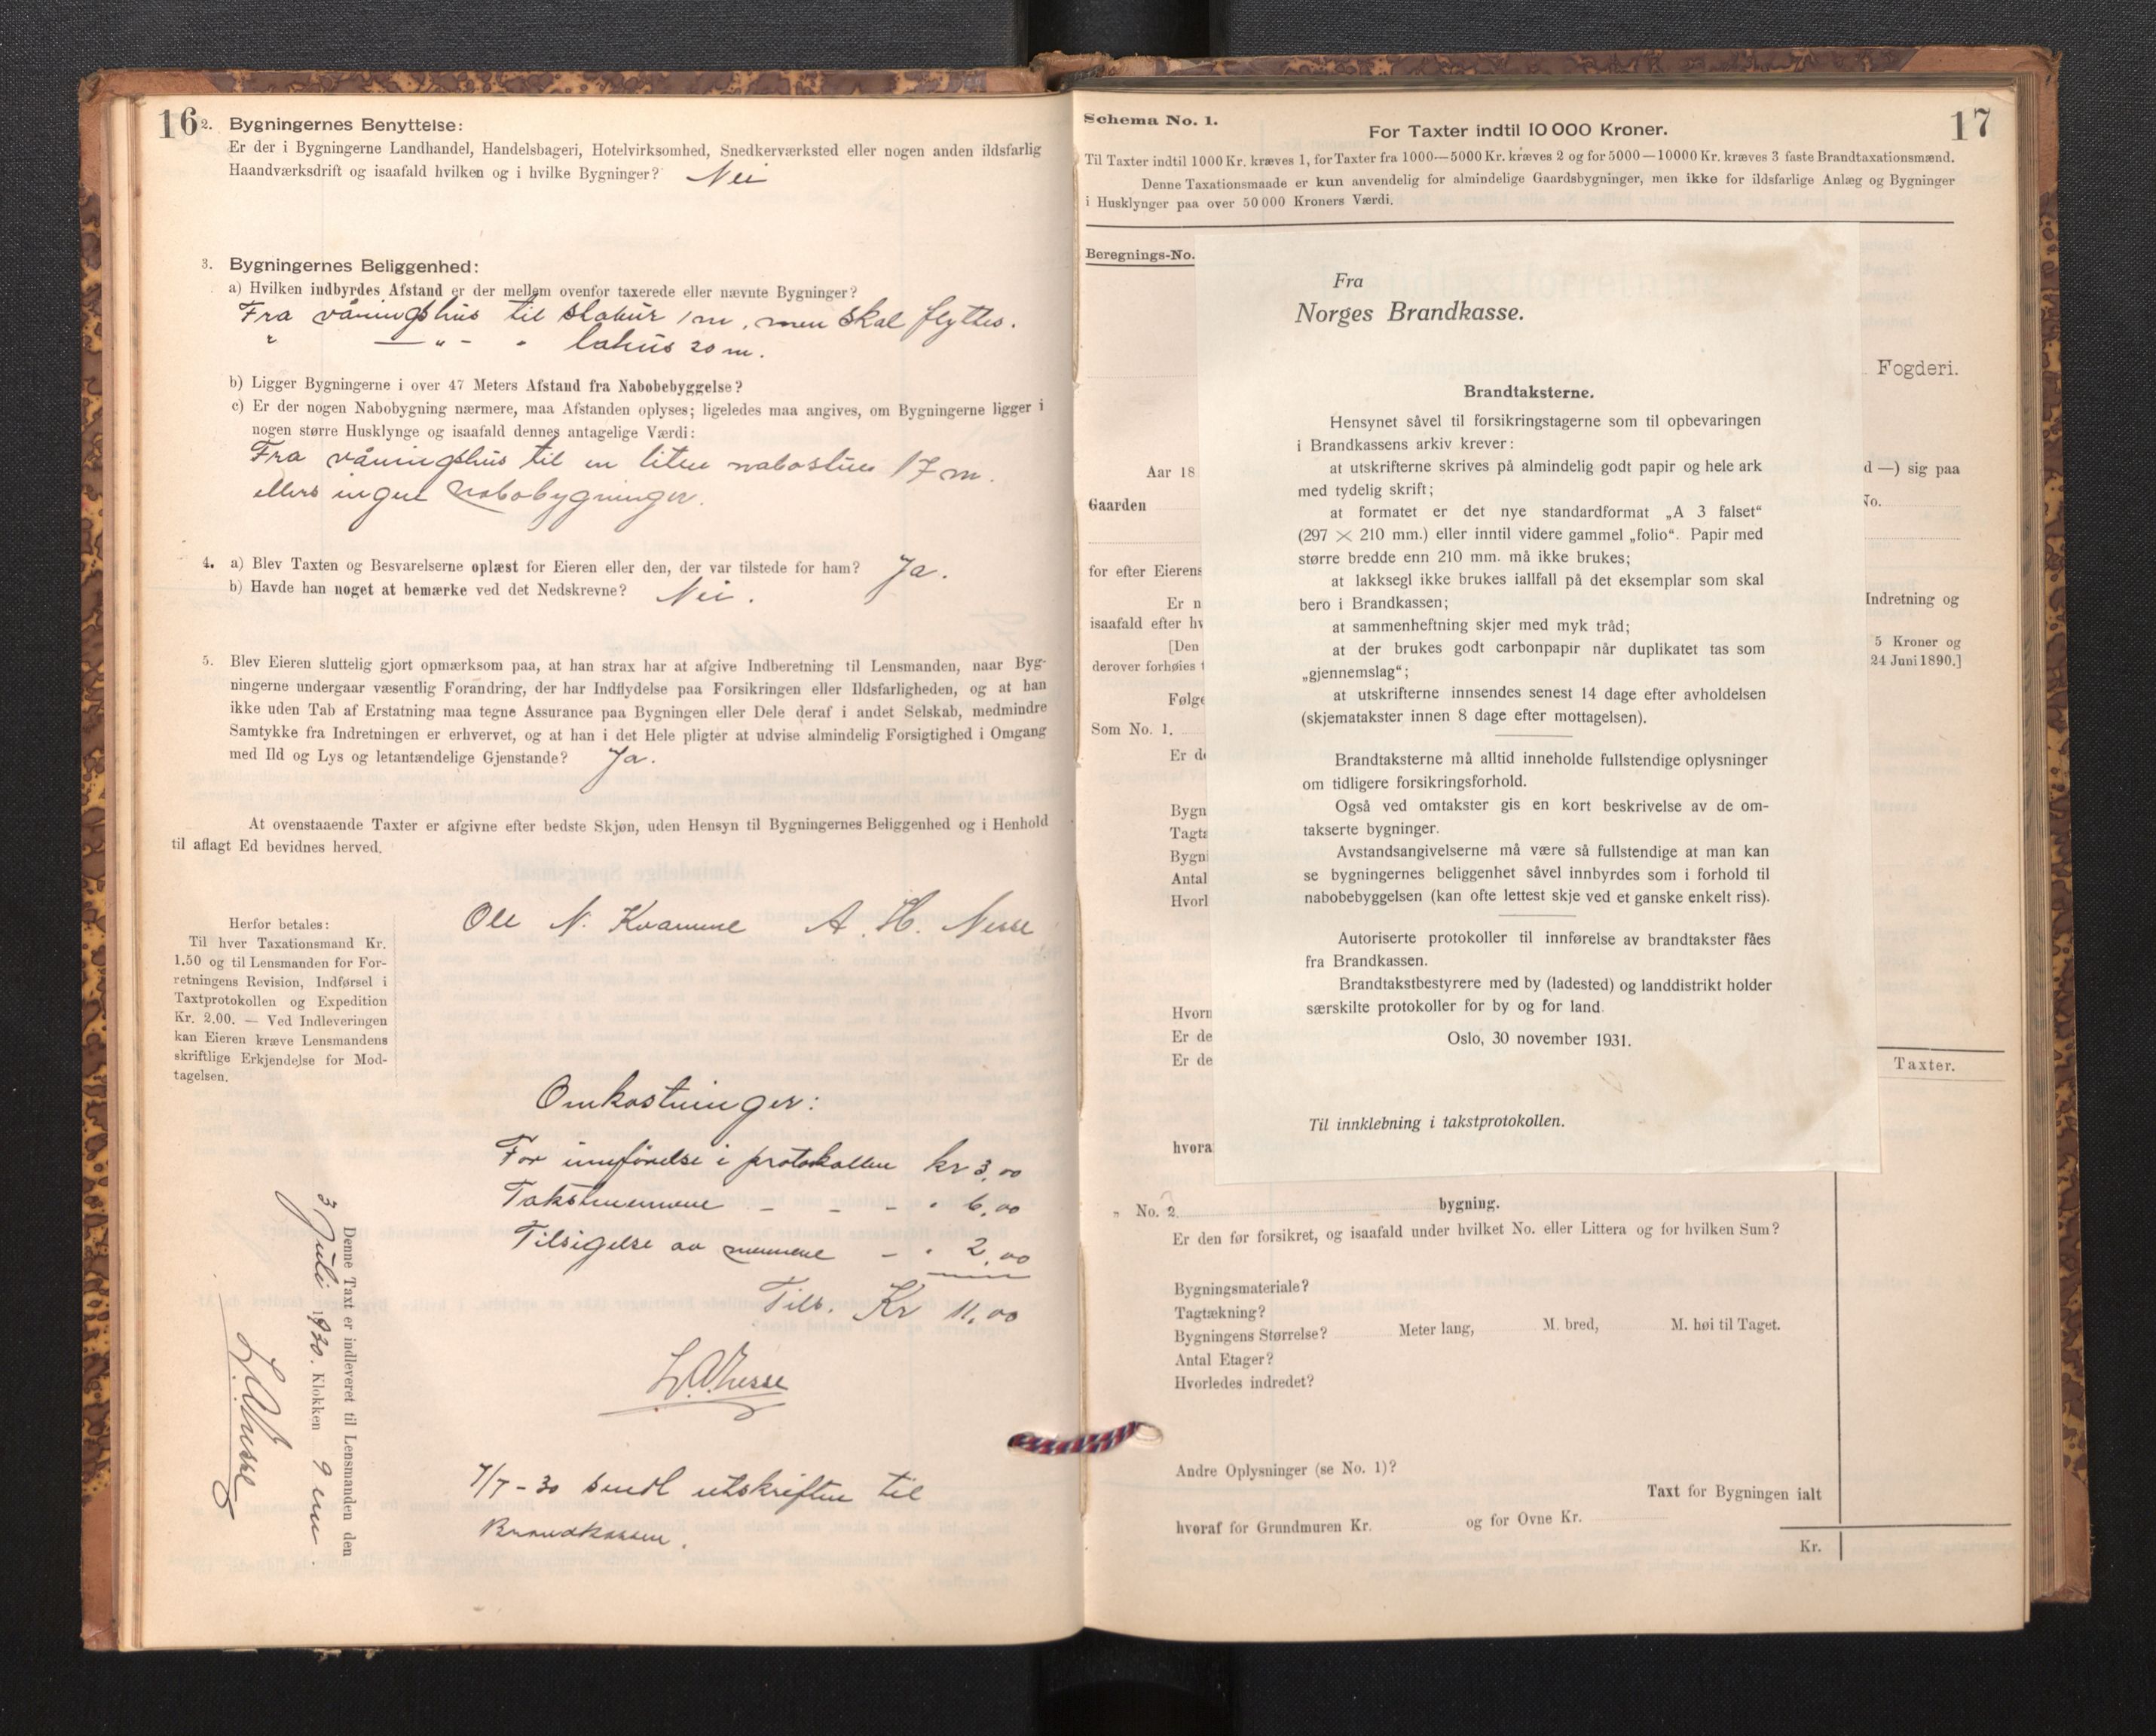 16
2. Bygningernes Benyttelse:
Er der i Bygningerne Landhandel, Handelsbageri, Hotelvirksomhed, Snedkerværksted eller nogen anden ildsfarlig
Haandværksdrift og isaafald hvilken og i hvilke Bygninger? Nei
3. Bygningernes Beliggenhed:
a) Hvilken indbyrdes Afstand er der mellem ovenfor taxerede eller nævnte Bygninger?
Fra våningshus til stabur 1 m, men skal flyttes.
" — " - " løhus 20 m.
b) Ligger Bygningerne i over 47 Meters Afstand fra Nabobebyggelse?
c) Er der nogen Nabobygning nærmere, maa Afstanden oplyses; ligeledes maa angives, om Bygningerne ligger i
nogen større Husklynge og isaafald dennes antagelige Værdi:
Fra våningshus til en liten nabostue 17 m.
ellers ingen nabobygninger.
4. a) Blev Taxten og Besvarelserne oplæst for Eieren eller den, der var tilstede for ham? Ja.
b) Havde han noget at bemærke ved det Nedskrevne? Nei.
5. Blev Eieren sluttelig gjort opmærksom paa, at han strax har at afgive Indberetning til Lensmanden, naar Byg-
ningerne undergaar væsentlig Forandring, der har Indflydelse paa Forsikringen eller Ildsfarligheden, og at han
ikke uden Tab af Erstatning maa tegne Assurance paa Bygningen eller Dele deraf i andet Selskab, medmindre
Samtykke fra Indretningen er erhvervet, og at han i det Hele pligter at udvise almindelig Forsigtighed i Omgang
med Ild og Lys og letantændelige Gjenstande? Ja.
At ovenstaaende Taxter er afgivne efter bedste Skjøn, uden Hensyn til Bygningernes Beliggenhed og i Henhold
til aflagt Ed bevidnes herved.
Ole N. Kvamme A. H. Nesse
Herfor betales:
Til hver Taxationsmand Kr.
1.50 og til Lensmanden for For-
retningens Revision, Indførsel i
Taxtprotokollen og Expedition
Kr. 2.00. — Ved Indleveringen
kan Eieren kræve Lensmandens
skriftlige Erkjendelse for Mod-
tagelsen.
Omkostninger:
For innførelse i protokollen kr 3,00
Takstmennene - - - " 6,00
Tilsigelse av mennene - " 2,00
Tils. Kr 11,00
Denne Taxt er indleveret til Lensmanden den
3 Juli 1930. Klokken 9 em
7/7-30 sendt utskriften til
Brandkassen.
17
Schema No. 1.
For Taxter indtil 10 000 Kroner.
Til Taxter indtil 1000 Kr. kræves 1, for Taxter fra 1000—5000 Kr. kræves 2 og for 5000—10000 Kr. kræves 3 faste Brandtaxationsmænd.
Denne Taxationsmaade er kun anvendelig for almindelige Gaardsbygninger, men ikke for ildsfarlige Anlæg og Bygninger
i Husklynger paa over 50 000 Kroners Værdi.
Beregnings-No.
Fogderi.
Aar 18
d —) sig paa
Gaarden
No.
for efter Eierens
Er n
Indretning og
isaafald efter hv
[Den
5 Kroner og
derover forhøies t
24 Juni 1890.]
Følge
Som No. 1.
Er de
Bygn
Tagtæ
Bygni
Antal
Hvorl
Hvorn
Er de
Er de
Taxter.
hvora
Fra
Norges Brandkasse.
Brandtaksterne.
Hensynet såvel til forsikringstagerne som til opbevaringen
i Brandkassens arkiv krever:
at utskrifterne skrives på almindelig godt papir og hele ark
med tydelig skrift;
at formatet er det nye standardformat „A 3 falset“
(297 × 210 mm.) eller inntil videre gammel „folio“. Papir med
større bredde enn 210 mm. må ikke brukes;
at lakksegl ikke brukes iallfall på det eksemplar som skal
bero i Brandkassen;
at sammenheftning skjer med myk tråd;
at der brukes godt carbonpapir når duplikatet tas som
„gjennemslag“;
at utskrifterne innsendes senest 14 dage efter avholdelsen
(skjematakster innen 8 dage efter mottagelsen).
Brandtaksterne må alltid inneholde fullstendige oplysninger
om tidligere forsikringsforhold.
Også ved omtakster gis en kort beskrivelse av de om-
takserte bygninger.
Avstandsangivelserne må være så fullstendige at man kan
se bygningernes beliggenhet såvel innbyrdes som i forhold til
nabobebyggelsen (kan ofte lettest skje ved et ganske enkelt riss).
Autoriserte protokoller til innførelse av brandtakster fåes
fra Brandkassen.
Brandtakstbestyrere med by (ladested) og landdistrikt holder
særskilte protokoller for by og for land.
Oslo, 30 november 1931.
Til innklebning i takstprotokollen.
„ No. 2. bygning.
Er den før forsikret, og isaafald under hvilket No. eller Littera og for hvilken Sum?
Bygningsmateriale?
Tagtækning?
Bygningens Størrelse? Meter lang, M. bred, M. høi til Taget.
Antal Etager?
Hvorledes indredet?
Andre Oplysninger (se No. 1)?
Taxt for Bygningen ialt
hvoraf for Grundmuren Kr. og for Ovne Kr.
Kr.